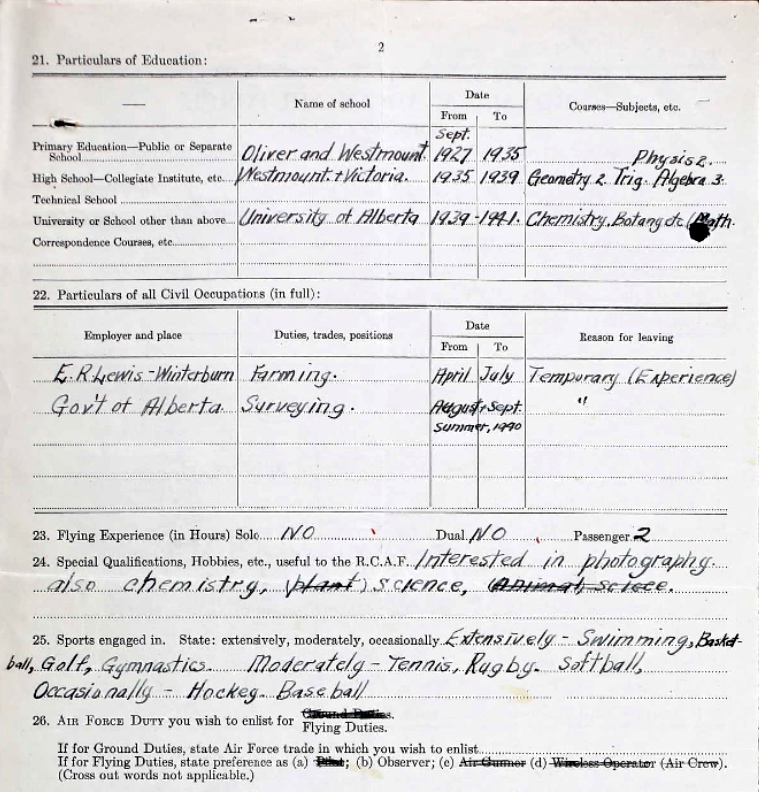 2
21. Particulars of Education:
Name of school
Date
Courses—Subjects, etc.
From To
Sept.
Primary Education—Public or Separate School Oliver and Westmount 1927 1935 Physis 2.
High School—Collegiate Institute, etc. Westmount + Victoria. 1935 1939 Geometry 2. Trig. Algebra 3.
Technical School
University or School other than above University of Alberta 1939 - 1941. Chemistry, Botany etc (Math.
Correspondence Courses, etc.
22. Particulars of all Civil Occupations (in full):
Employer and place Duties, trades, positions Date Reason for leaving
From To
E.R. Lewis - Winterburn Farming. April July Temporary (Experience)
Gov't of Alberta. Surveying. August + Sept. "
Summer, 1940
23. Flying Experience (in Hours) Solo NO Dual NO Passenger 2
24. Special Qualifications, Hobbies, etc., useful to the R.C.A.F. Interested in photography.
also chemistry, (plant) science, (Animal) sciece.
25. Sports engaged in. State: extensively, moderately, occasionally Extensively - Swimming, Basket-
ball, Golf, Gymnastics. Moderately - Tennis, Rugby. Softball,
Occasionally - Hockey. Baseball
26. AIR FORCE DUTY you wish to enlist for Ground Duties.
Flying Duties.
If for Ground Duties, state Air Force trade in which you wish to enlist
If for Flying Duties, state preference as (a) Pilot; (b) Observer; (c) Air Gunner (d) Wireless Operator (Air Crew).
(Cross out words not applicable.)